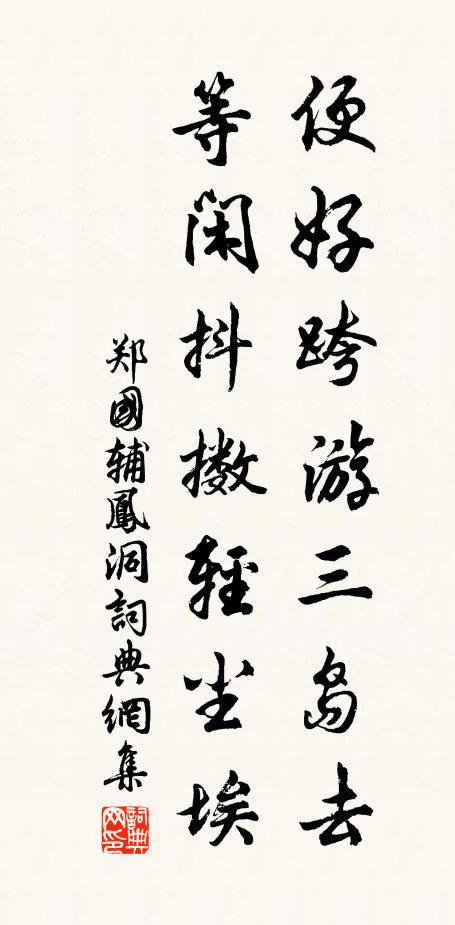 便好跨游三岛去
等闲抖擞轻尘埃
郑國辅鳳洞詞典網集
詞典网印